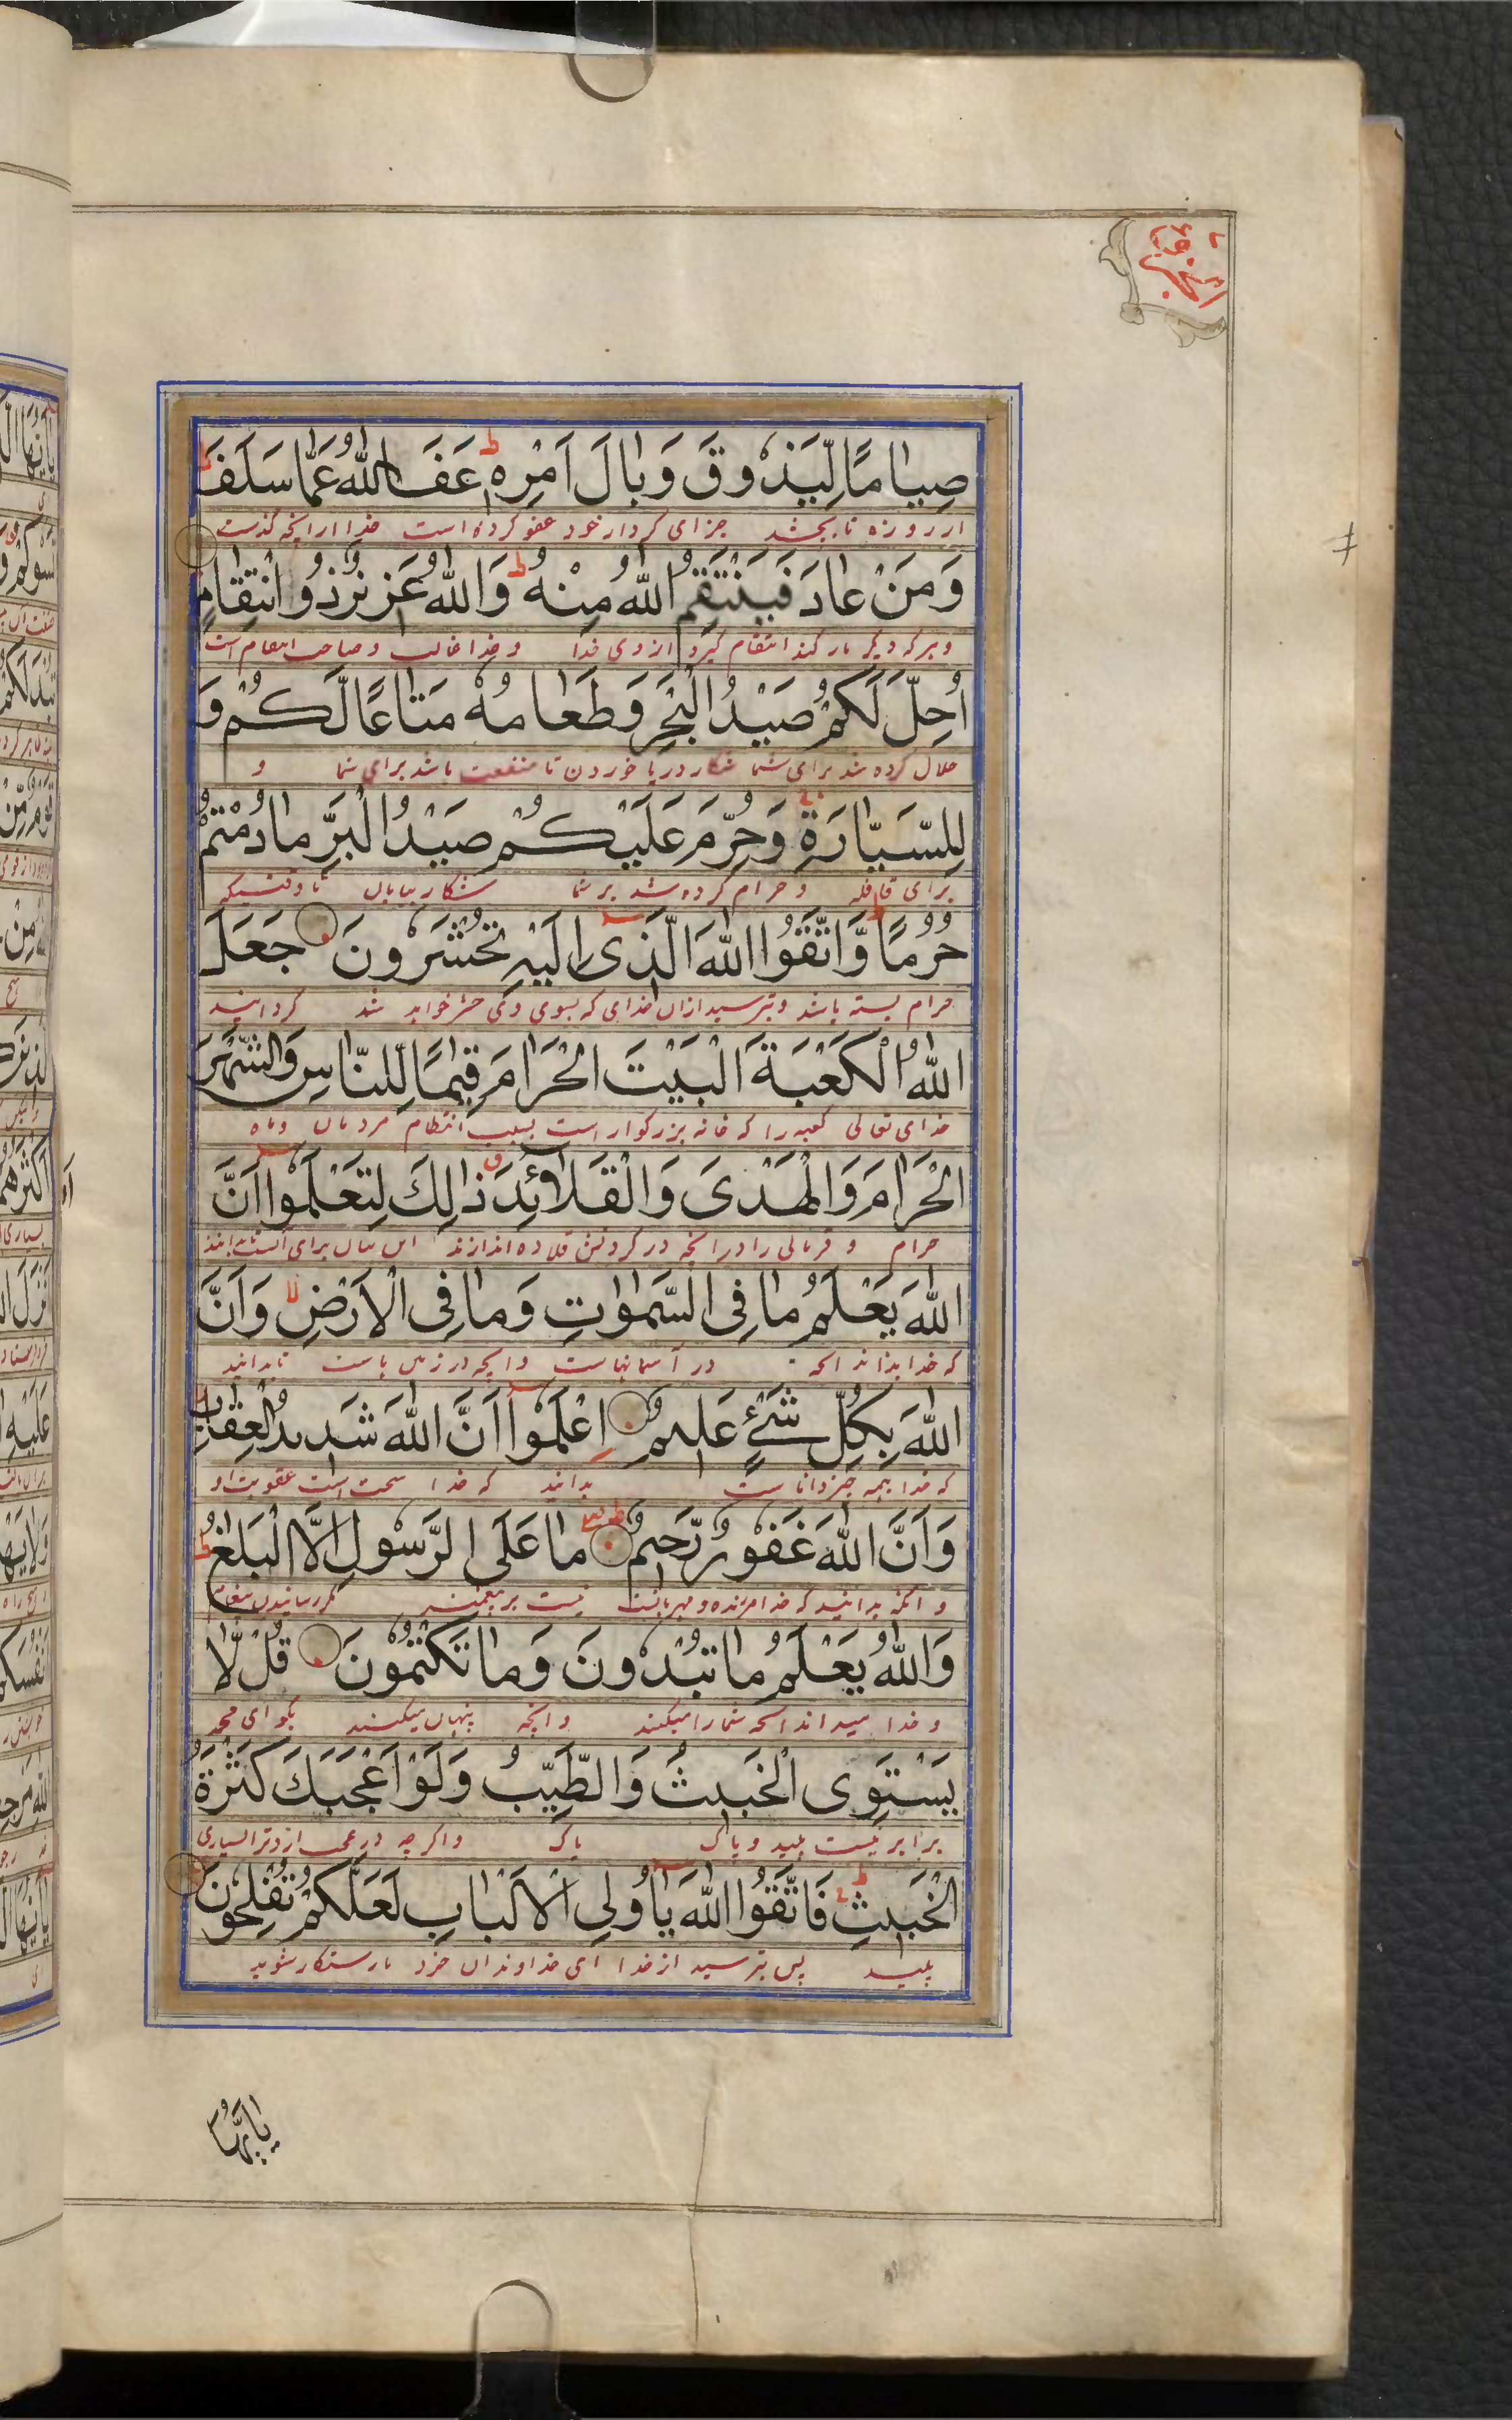 الجزو
صِيٰامًا لِّيَذُوقَ وَبٰالَ اَمْرِهٖ ط عَفَا اللّٰهُ عَمّٰا سَلَفَ ط
از روزه تا بچشد جزای کردار خود عفو کرده است خدا از انچه گذشت
وَمَنْ عٰادَ فَيَنْتَقِمُ اللّٰهُ مِنْهُ ط وَاللّٰهُ عَزِيزٌ ذُو انْتِقٰامٍ
و هر که دیگر بار کند انتقام گیرد از وی خدا و خدا غالب و صاحب انتقام است
اُحِلَّ لَكُمْ صَيْدُ الْبَحْرِ وَطَعٰامُهُ مَتٰاعًا لَّكُمْ وَ
حلال کرده شد برای شما شکار دریا خوردن تا منفعت باشد برای شما و
لِلسَّيّٰارَةِ وَحُرِّمَ عَلَيْكُمْ صَيْدُ الْبَرِّ مٰا دُمْتُمْ
برای قافله و حرام کرده شد بر شما شکار بیابان تا وقتیکه
حُرُمًا ط وَّاتَّقُوا اللّٰهَ الَّذِى اِلَيْهِ تُحْشَرُونَ جَعَلَ
حرام بسته باشد و بترسید ازان خدای که بسوی وی حشر خواهد شد گردانید
اللّٰهُ الْكَعْبَةَ الْبَيْتَ الْحَرٰامَ قِيٰمًا لِّلنّٰاسِ وَالشَّهْرَ
خدای تعالی کعبه را که خانه بزرگوار است بسبب انتظام مردمان و ماه
الْحَرٰامَ وَالْهَدْىَ وَالْقَلٰٓائِدَ ذٰالِكَ لِتَعْلَمُوٓا اَنَّ
حرام و قربانی را و انچه در گردنش قلاده اندازند این بیان برای انست تا بدانند
اللّٰهَ يَعْلَمُ مٰا فِى السَّمٰوٰتِ وَمٰا فِى الْاَرْضِ لا وَاَنَّ
که خدا بداند انچه در آسمانهاست و انچه در زمین باست تا بدانید
اللّٰهَ بِكُلِّ شَىْءٍ عَلِيمٌ اِعْلَمُوٓا اَنَّ اللّٰهَ شَدِيدُ الْعِقٰابِ
که خدا بهمه چیز داناست بدانید که خدا سخت است عقوبت او
وَاَنَّ اللّٰهَ غَفُورٌ رَّحِيمٌ ط مٰا عَلَى الرَّسُولِ اِلَّا الْبَلٰغُ ط
و انکه بدانید که خدا امرزنده و مهربانست نیست بر پیغمبر مگر رسانیدن پیغام
وَاللّٰهُ يَعْلَمُ مٰا تُبْدُونَ وَمٰا تَكْتُمُونَ قُلْ لّٰا
و خدا میداند انچه شما را میکنید و انچه پنهان میکنید بگو ای محمد
يَسْتَوِى الْخَبِيثُ وَالطَّيِّبُ وَلَوْ اَعْجَبَكَ كَثْرَةُ
برابر نیست پلید و پاک پاک و اگر چه در عجب ازد ترا بسیاری
الْخَبِيثِ ط فَاتَّقُوا اللّٰهَ يٰٓا اُولِى الْاَلْبٰابِ لَعَلَّكُمْ تُفْلِحُونَ
پلید پس بترسید از خدا ای خداوندان خرد تا رستگار شوید
يٰٓاَيُّهَا